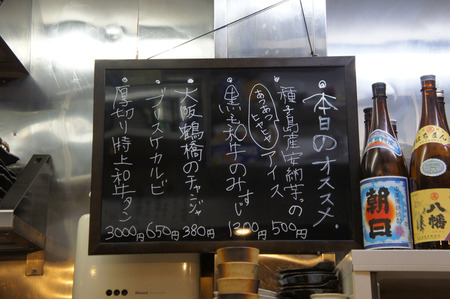 本日のオススメ
種子島産安納芋の
あつあつヒヤヒヤ
アイス
500円
黒毛和牛のみすじ
1200円
大阪鶴橋のチャンジャ
380円
ブースケカルビ
650円
厚切り特上和牛タン
3000円
朝日
八幡